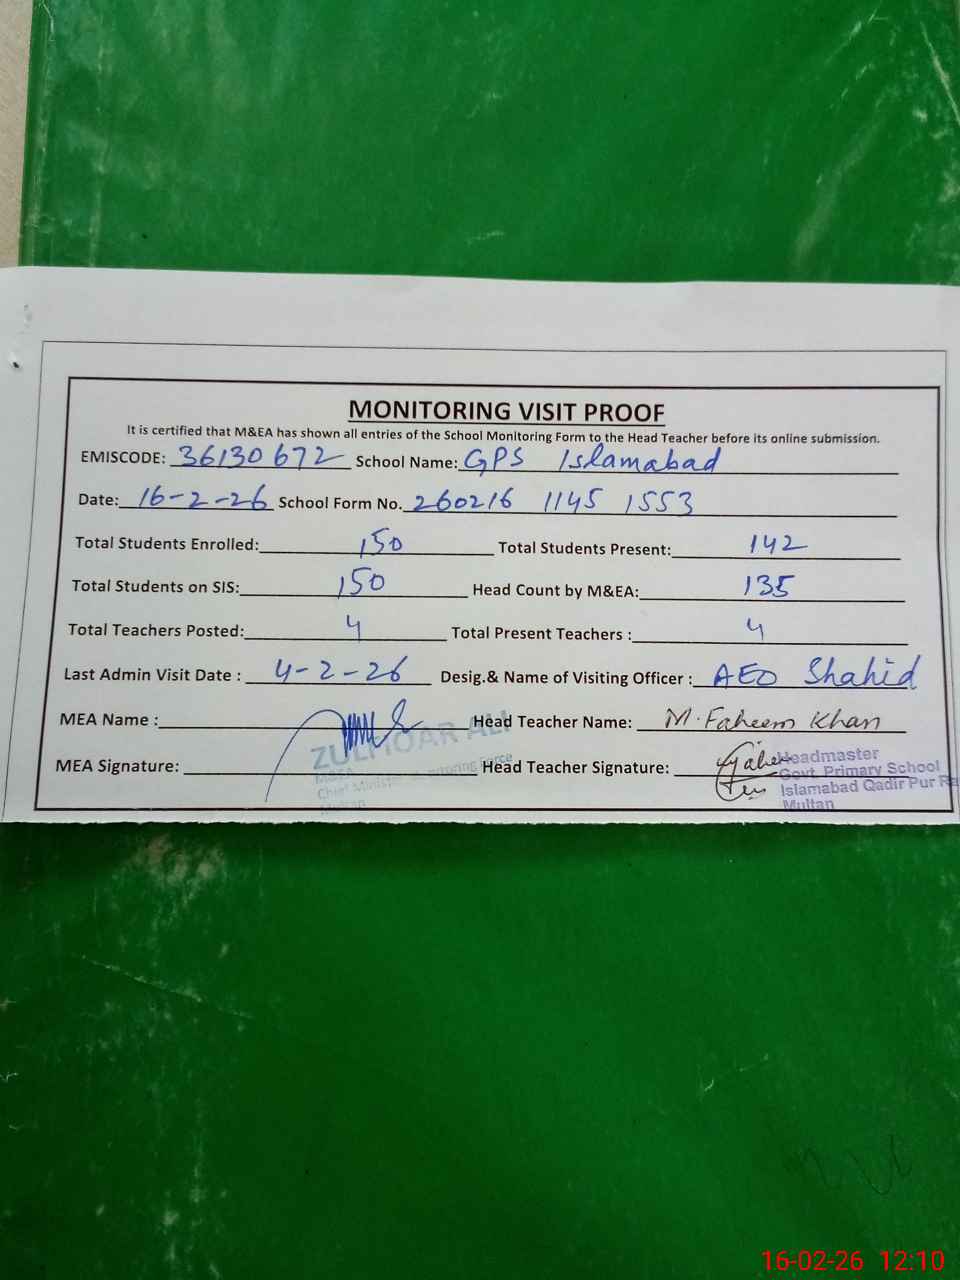 MONITORING VISIT PROOF
It is certified that M&EA has shown all entries of the School Monitoring Form to the Head Teacher before its online submission.
EMISCODE: 36130672 School Name: GPS Islamabad
Date: 16-2-26 School Form No. 260216 1145 1553
Total Students Enrolled: 150 Total Students Present: 142
Total Students on SIS: 150 Head Count by M&EA: 135
Total Teachers Posted: 4 Total Present Teachers : 4
Last Admin Visit Date : 4-2-26 Desig.& Name of Visiting Officer : AEO Shahid
MEA Name : Head Teacher Name: M. Faheem Khan
ZULFIQAR ALI
MEA Signature: Head Teacher Signature:
Chief Minister Monitoring Force
Multan
Headmaster
Govt. Primary School
Islamabad Qadir Pur
Multan
16-02-26 12:10